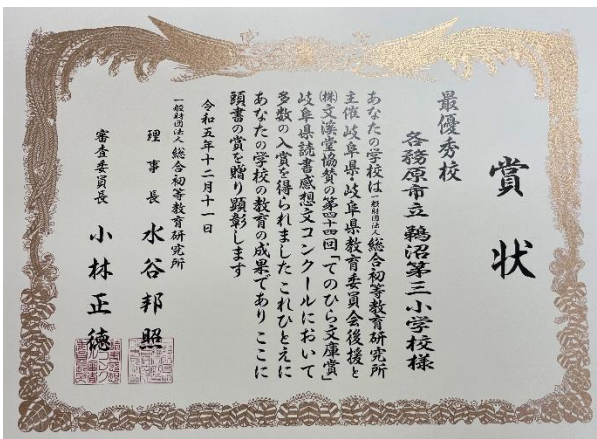 賞状
最優秀校
各務原市立 鵜沼第三小学校様
あなたの学校は一般財団法人総合初等教育研究所
主催岐阜県・岐阜県教育委員会後援と
㈱文溪堂協賛の第四十四回「てのひら文庫賞」
岐阜県読書感想文コンクールにおいて
多数の入賞を得られました これひとえに
あなたの学校の教育の成果であり ここに
頭書の賞を贈り顕彰します
令和五年十二月十一日
一般財団法人 総合初等教育研究所
理事長 水谷邦照
審査委員長 小林正徳